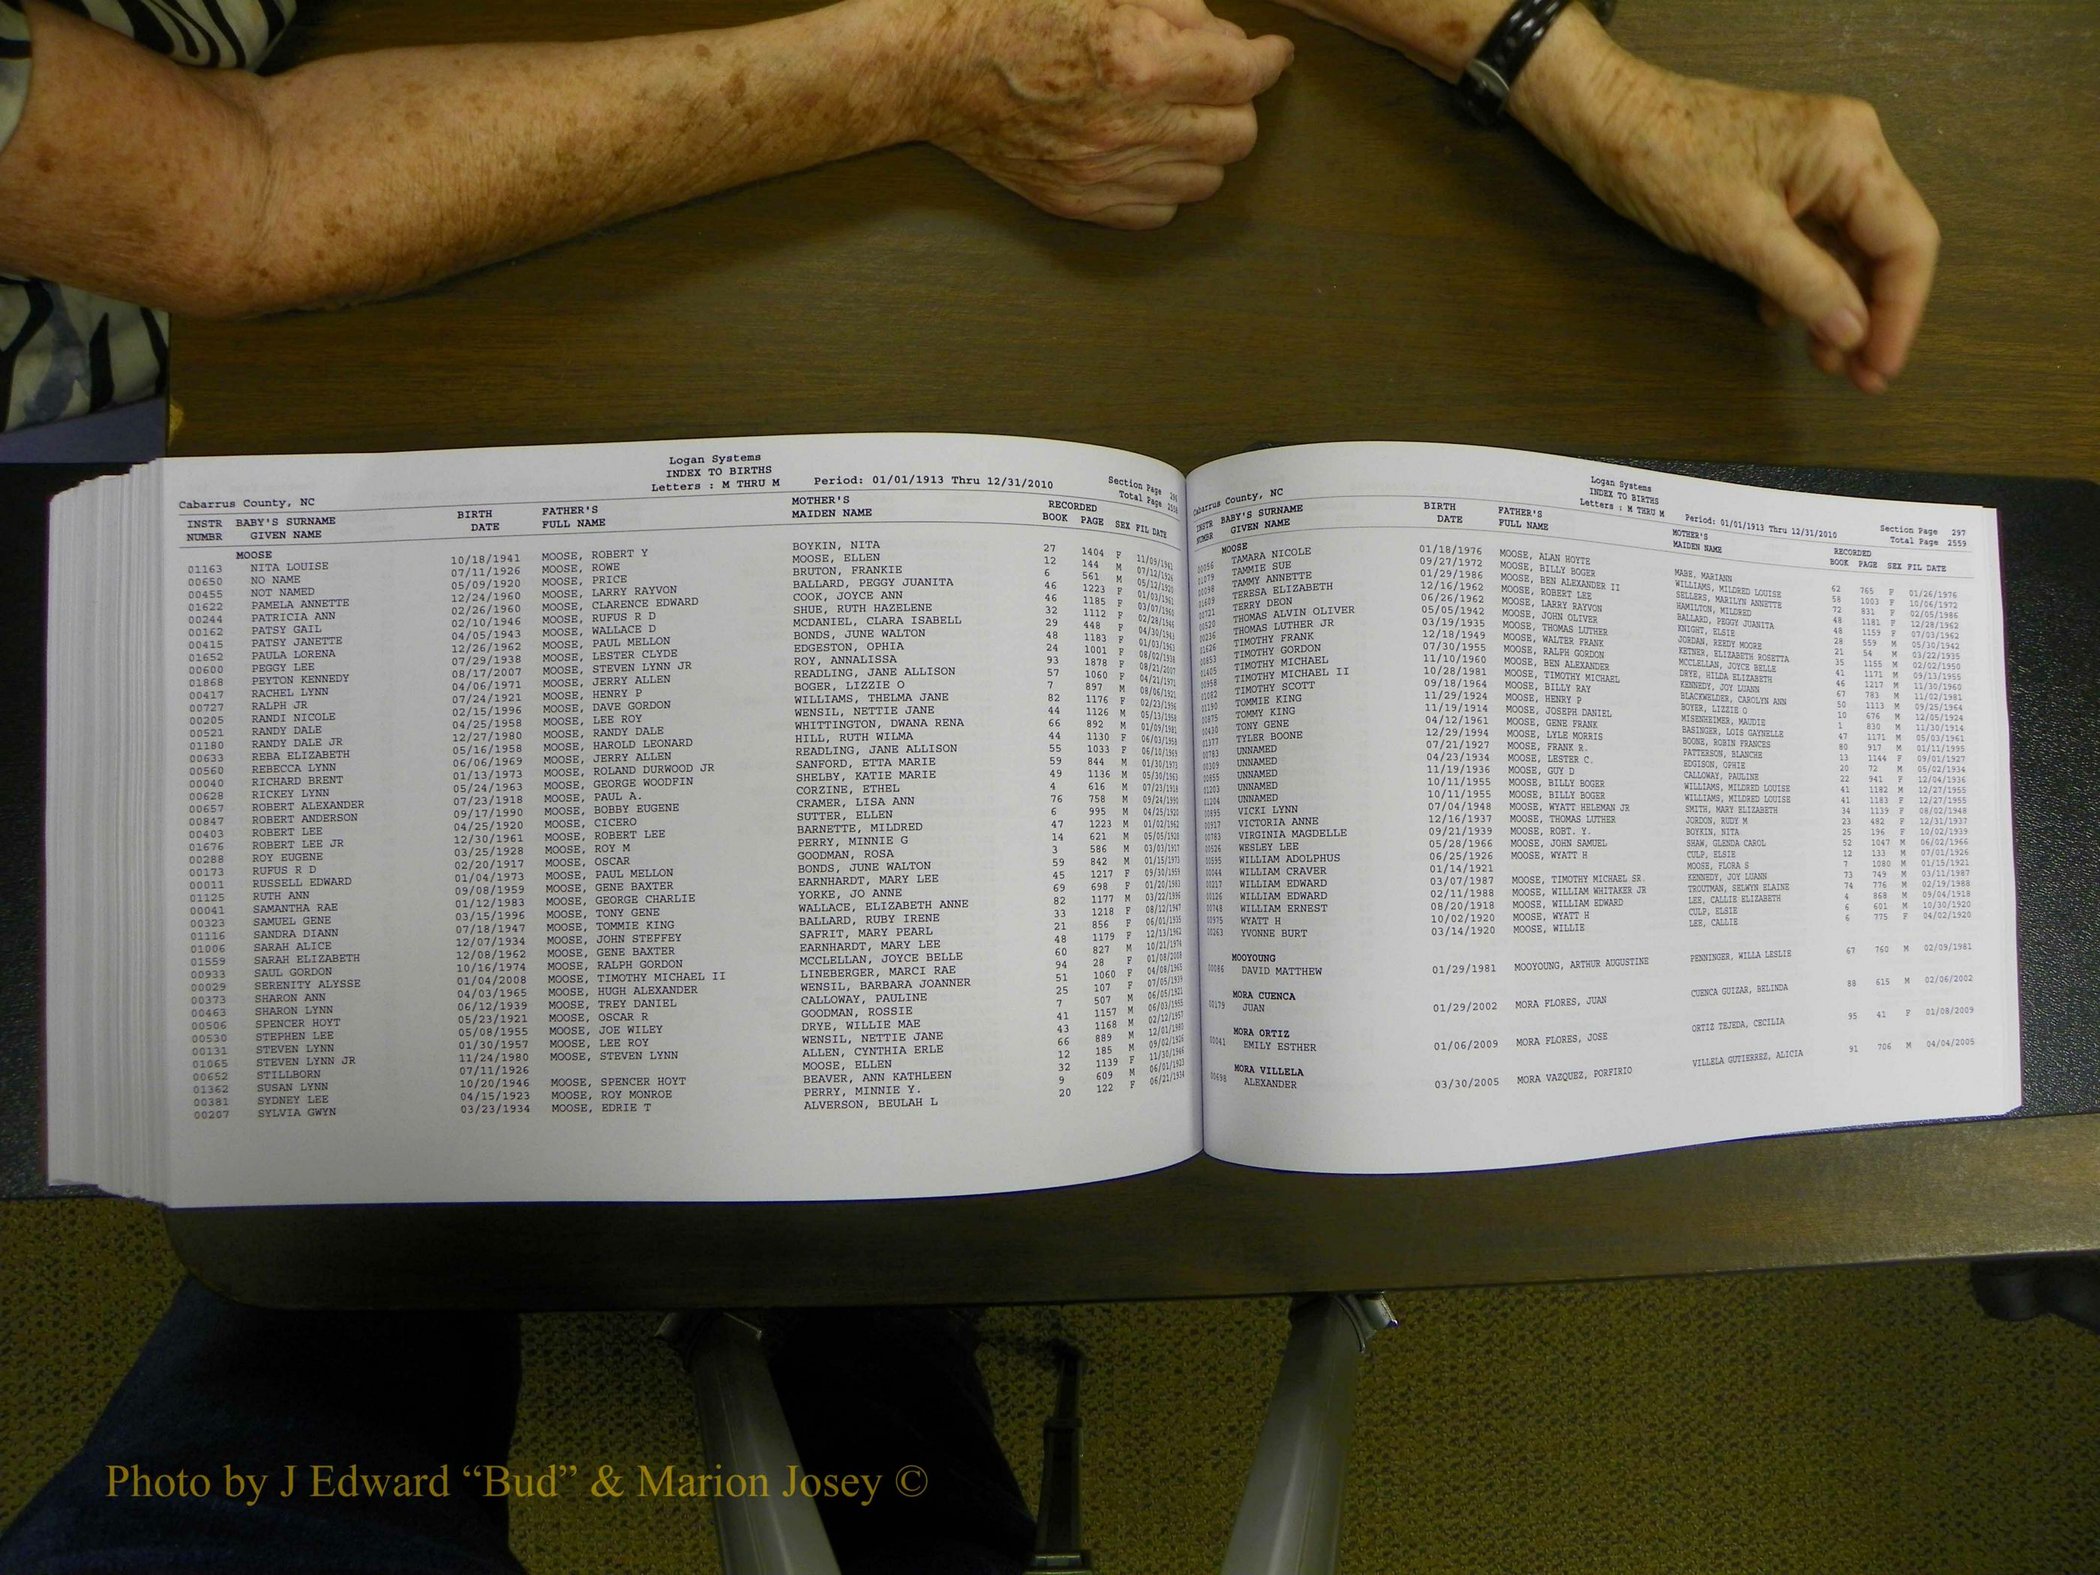 Logan Systems
INDEX TO BIRTHS
Letters : M THRU M Period: 01/01/1913 Thru 12/31/2010
Cabarrus County, NC Section Page 296
Total Page 2558
INSTR BABY'S SURNAME BIRTH FATHER'S MOTHER'S RECORDED
NUMBR GIVEN NAME DATE FULL NAME MAIDEN NAME BOOK PAGE SEX FIL DATE
MOOSE
01163 NITA LOUISE 10/18/1941 MOOSE, ROBERT Y BOYKIN, NITA 27 1404 F 11/09/1941
00650 NO NAME 07/11/1926 MOOSE, ROWE MOOSE, ELLEN 12 144 M 07/12/1926
00455 NOT NAMED 05/09/1920 MOOSE, PRICE BRUTON, FRANKIE 6 561 M 05/12/1920
01622 PAMELA ANNETTE 12/24/1960 MOOSE, LARRY RAYVON BALLARD, PEGGY JUANITA 46 1223 F 01/03/1961
00244 PATRICIA ANN 02/26/1960 MOOSE, CLARENCE EDWARD COOK, JOYCE ANN 46 1185 F 03/07/1960
00162 PATSY GAIL 02/10/1946 MOOSE, RUFUS R D SHUE, RUTH HAZELENE 32 1112 F 02/28/1946
00415 PATSY JANETTE 04/05/1943 MOOSE, WALLACE D MCDANIEL, CLARA ISABELL 29 448 F 04/30/1943
01652 PAULA LORENA 12/26/1962 MOOSE, PAUL MELLON BONDS, JUNE WALTON 48 1183 F 01/03/1963
00600 PEGGY LEE 07/29/1938 MOOSE, LESTER CLYDE EDGESTON, OPHIA 24 1001 F 08/02/1938
01868 PEYTON KENNEDY 08/17/2007 MOOSE, STEVEN LYNN JR ROY, ANNALISSA 93 1878 F 08/21/2007
00417 RACHEL LYNN 04/06/1971 MOOSE, JERRY ALLEN READLING, JANE ALLISON 57 1060 F 04/21/1971
00727 RALPH JR 07/24/1921 MOOSE, HENRY P BOGER, LIZZIE O 7 897 M 08/06/1921
00205 RANDI NICOLE 02/15/1996 MOOSE, DAVE GORDON WILLIAMS, THELMA JANE 82 1176 F 02/23/1996
00521 RANDY DALE 04/25/1958 MOOSE, LEE ROY WENSIL, NETTIE JANE 44 1126 M 05/13/1958
01180 RANDY DALE JR 12/27/1980 MOOSE, RANDY DALE WHITTINGTON, DWANA RENA 66 892 M 01/09/1981
00633 REBA ELIZABETH 05/16/1958 MOOSE, HAROLD LEONARD HILL, RUTH WILMA 44 1130 F 06/03/1958
00560 REBECCA LYNN 06/06/1969 MOOSE, JERRY ALLEN READLING, JANE ALLISON 55 1033 F 06/10/1969
00040 RICHARD BRENT 01/13/1973 MOOSE, ROLAND DURWOOD JR SANFORD, ETTA MARIE 59 844 M 01/30/1973
00628 RICKEY LYNN 05/24/1963 MOOSE, GEORGE WOODFIN SHELBY, KATIE MARIE 49 1136 M 05/30/1963
00657 ROBERT ALEXANDER 07/23/1918 MOOSE, PAUL A. CORZINE, ETHEL 4 616 M 07/23/1918
00847 ROBERT ANDERSON 09/17/1990 MOOSE, BOBBY EUGENE CRAMER, LISA ANN 76 758 M 09/24/1990
00403 ROBERT LEE 04/25/1920 MOOSE, CICERO SUTTER, ELLEN 6 995 M 04/25/1920
01676 ROBERT LEE JR 12/30/1961 MOOSE, ROBERT LEE BARNETTE, MILDRED 47 1223 M 01/02/1962
00288 ROY EUGENE 03/25/1928 MOOSE, ROY M PERRY, MINNIE G 14 621 M 05/05/1928
00173 RUFUS R D 02/20/1917 MOOSE, OSCAR GOODMAN, ROSA 3 586 M 03/03/1917
00011 RUSSELL EDWARD 01/04/1973 MOOSE, PAUL MELLON BONDS, JUNE WALTON 59 842 M 01/15/1973
01125 RUTH ANN 09/08/1959 MOOSE, GENE BAXTER EARNHARDT, MARY LEE 45 1217 F 09/30/1959
00041 SAMANTHA RAE 01/12/1983 MOOSE, GEORGE CHARLIE YORKE, JO ANNE 69 698 F 01/20/1983
00323 SAMUEL GENE 03/15/1996 MOOSE, TONY GENE WALLACE, ELIZABETH ANNE 82 1177 M 03/22/1996
01116 SANDRA DIANN 07/18/1947 MOOSE, TOMMIE KING BALLARD, RUBY IRENE 33 1218 F 08/12/1947
01006 SARAH ALICE 12/07/1934 MOOSE, JOHN STEFFEY SAFRIT, MARY PEARL 21 856 F 06/01/1935
01559 SARAH ELIZABETH 12/08/1962 MOOSE, GENE BAXTER EARNHARDT, MARY LEE 48 1179 F 12/13/1962
00933 SAUL GORDON 10/16/1974 MOOSE, RALPH GORDON MCCLELLAN, JOYCE BELLE 60 827 M 10/21/1974
00029 SERENITY ALYSSE 01/04/2008 MOOSE, TIMOTHY MICHAEL II LINEBERGER, MARCI RAE 94 28 F 01/08/2008
00373 SHARON ANN 04/03/1965 MOOSE, HUGH ALEXANDER WENSIL, BARBARA JOANNER 51 1060 F 04/08/1965
00463 SHARON LYNN 06/12/1939 MOOSE, TREY DANIEL CALLOWAY, PAULINE 25 107 F 07/05/1939
00506 SPENCER HOYT 05/23/1921 MOOSE, OSCAR R GOODMAN, ROSSIE 7 507 M 06/05/1921
00530 STEPHEN LEE 05/08/1955 MOOSE, JOE WILEY DRYE, WILLIE MAE 41 1157 M 06/03/1955
00131 STEVEN LYNN 01/30/1957 MOOSE, LEE ROY WENSIL, NETTIE JANE 43 1168 M 02/12/1957
01065 STEVEN LYNN JR 11/24/1980 MOOSE, STEVEN LYNN ALLEN, CYNTHIA ERLE 66 889 M 12/01/1980
00652 STILLBORN 07/11/1926 MOOSE, ELLEN 12 185 M 09/02/1926
01362 SUSAN LYNN 10/20/1946 MOOSE, SPENCER HOYT BEAVER, ANN KATHLEEN 32 1139 F 11/30/1946
00381 SYDNEY LEE 04/15/1923 MOOSE, ROY MONROE PERRY, MINNIE Y. 9 609 M 06/01/1923
00207 SYLVIA GWYN 03/23/1934 MOOSE, EDRIE T ALVERSON, BEULAH L 20 122 F 06/21/1934
Logan Systems
INDEX TO BIRTHS
Letters : M THRU M Period: 01/01/1913 Thru 12/31/2010
Cabarrus County, NC Section Page 297
Total Page 2559
INSTR BABY'S SURNAME BIRTH FATHER'S MOTHER'S RECORDED
NUMBR GIVEN NAME DATE FULL NAME MAIDEN NAME BOOK PAGE SEX FIL DATE
MOOSE
00056 TAMARA NICOLE 01/18/1976 MOOSE, ALAN HOYTE MABE, MARIANN 62 765 F 01/26/1976
01079 TAMMIE SUE 09/27/1972 MOOSE, BILLY BOGER WILLIAMS, MILDRED LOUISE 58 1003 F 10/06/1972
00098 TAMMY ANNETTE 01/29/1986 MOOSE, BEN ALEXANDER II SELLERS, MARILYN ANNETTE 72 831 F 02/05/1986
01609 TERESA ELIZABETH 12/16/1962 MOOSE, ROBERT LEE HAMILTON, MILDRED 48 1181 F 12/28/1962
00721 TERRY DEON 06/26/1962 MOOSE, LARRY RAYVON BALLARD, PEGGY JUANITA 48 1159 F 07/03/1962
00520 THOMAS ALVIN OLIVER 05/05/1942 MOOSE, JOHN OLIVER KNIGHT, ELSIE 28 559 M 05/30/1942
00236 THOMAS LUTHER JR 03/19/1935 MOOSE, THOMAS LUTHER JORDAN, REEDY MOORE 21 54 M 03/22/1935
01626 TIMOTHY FRANK 12/18/1949 MOOSE, WALTER FRANK KETNER, ELIZABETH ROSETTA 35 1155 M 02/02/1950
00853 TIMOTHY GORDON 07/30/1955 MOOSE, RALPH GORDON MCCLELLAN, JOYCE BELLE 41 1171 M 09/13/1955
01405 TIMOTHY MICHAEL 11/10/1960 MOOSE, BEN ALEXANDER DRYE, HILDA ELIZABETH 46 1217 M 11/30/1960
00958 TIMOTHY MICHAEL II 10/28/1981 MOOSE, TIMOTHY MICHAEL KENNEDY, JOY LUANN 67 783 M 11/02/1981
01082 TIMOTHY SCOTT 09/18/1964 MOOSE, BILLY RAY BLACKWELDER, CAROLYN ANN 50 1113 M 09/25/1964
01190 TOMMIE KING 11/29/1924 MOOSE, HENRY P BOYER, LIZZIE O 10 676 M 12/05/1924
00875 TOMMY KING 11/19/1914 MOOSE, JOSEPH DANIEL MISENHEIMER, MAUDIE 1 830 M 11/30/1914
00430 TONY GENE 04/12/1961 MOOSE, GENE FRANK BASINGER, LOIS GAYNELLE 47 1171 M 05/03/1961
01377 TYLER BOONE 12/29/1994 MOOSE, LYLE MORRIS BOONE, ROBIN FRANCES 80 917 M 01/11/1995
00783 UNNAMED 07/21/1927 MOOSE, FRANK R. PATTERSON, BLANCHE 13 1144 F 09/01/1927
00309 UNNAMED 04/23/1934 MOOSE, LESTER C. EDGISON, OPHIE 20 72 M 05/02/1934
00855 UNNAMED 11/19/1936 MOOSE, GUY D CALLOWAY, PAULINE 22 941 F 12/04/1936
01203 UNNAMED 10/11/1955 MOOSE, BILLY BOGER WILLIAMS, MILDRED LOUISE 41 1182 M 12/27/1955
01204 UNNAMED 10/11/1955 MOOSE, BILLY BOGER WILLIAMS, MILDRED LOUISE 41 1183 F 12/27/1955
00895 VICKI LYNN 07/04/1948 MOOSE, WYATT HELEMAN JR SMITH, MARY ELIZABETH 34 1139 F 08/02/1948
00917 VICTORIA ANNE 12/16/1937 MOOSE, THOMAS LUTHER JORDON, RUDY M 23 482 F 12/31/1937
00783 VIRGINIA MAGDELLE 09/21/1939 MOOSE, ROBT. Y. BOYKIN, NITA 25 196 F 10/02/1939
00526 WESLEY LEE 05/28/1966 MOOSE, JOHN SAMUEL SHAW, GLENDA CAROL 52 1047 M 06/02/1966
00595 WILLIAM ADOLPHUS 06/25/1926 MOOSE, WYATT H CULP, ELSIE 12 133 M 07/01/1926
00044 WILLIAM CRAVER 01/14/1921 MOOSE, FLORA S 7 1080 M 01/15/1921
00217 WILLIAM EDWARD 03/07/1987 MOOSE, TIMOTHY MICHAEL SR. KENNEDY, JOY LUANN 73 749 M 03/11/1987
00126 WILLIAM EDWARD 02/11/1988 MOOSE, WILLIAM WHITAKER JR TROUTMAN, SELWYN ELAINE 74 776 M 02/19/1988
00748 WILLIAM ERNEST 08/20/1918 MOOSE, WILLIAM EDWARD LEE, CALLIE ELIZABETH 4 868 M 09/04/1918
00975 WYATT H 10/02/1920 MOOSE, WYATT H CULP, ELSIE 6 601 M 10/30/1920
00263 YVONNE BURT 03/14/1920 MOOSE, WILLIE LEE, CALLIE 6 775 F 04/02/1920
MOOYOUNG
00086 DAVID MATTHEW 01/29/1981 MOOYOUNG, ARTHUR AUGUSTINE PENNINGER, WILLA LESLIE 67 760 M 02/09/1981
MORA CUENCA
00179 JUAN 01/29/2002 MORA FLORES, JUAN CUENCA GUIZAR, BELINDA 88 615 M 02/06/2002
MORA ORTIZ
00041 EMILY ESTHER 01/06/2009 MORA FLORES, JOSE ORTIZ TEJEDA, CECILIA 95 41 F 01/08/2009
MORA VILLELA
00698 ALEXANDER 03/30/2005 MORA VAZQUEZ, PORFIRIO VILLELA GUTIERREZ, ALICIA 91 706 M 04/04/2005
Photo by J Edward “Bud” & Marion Josey ©